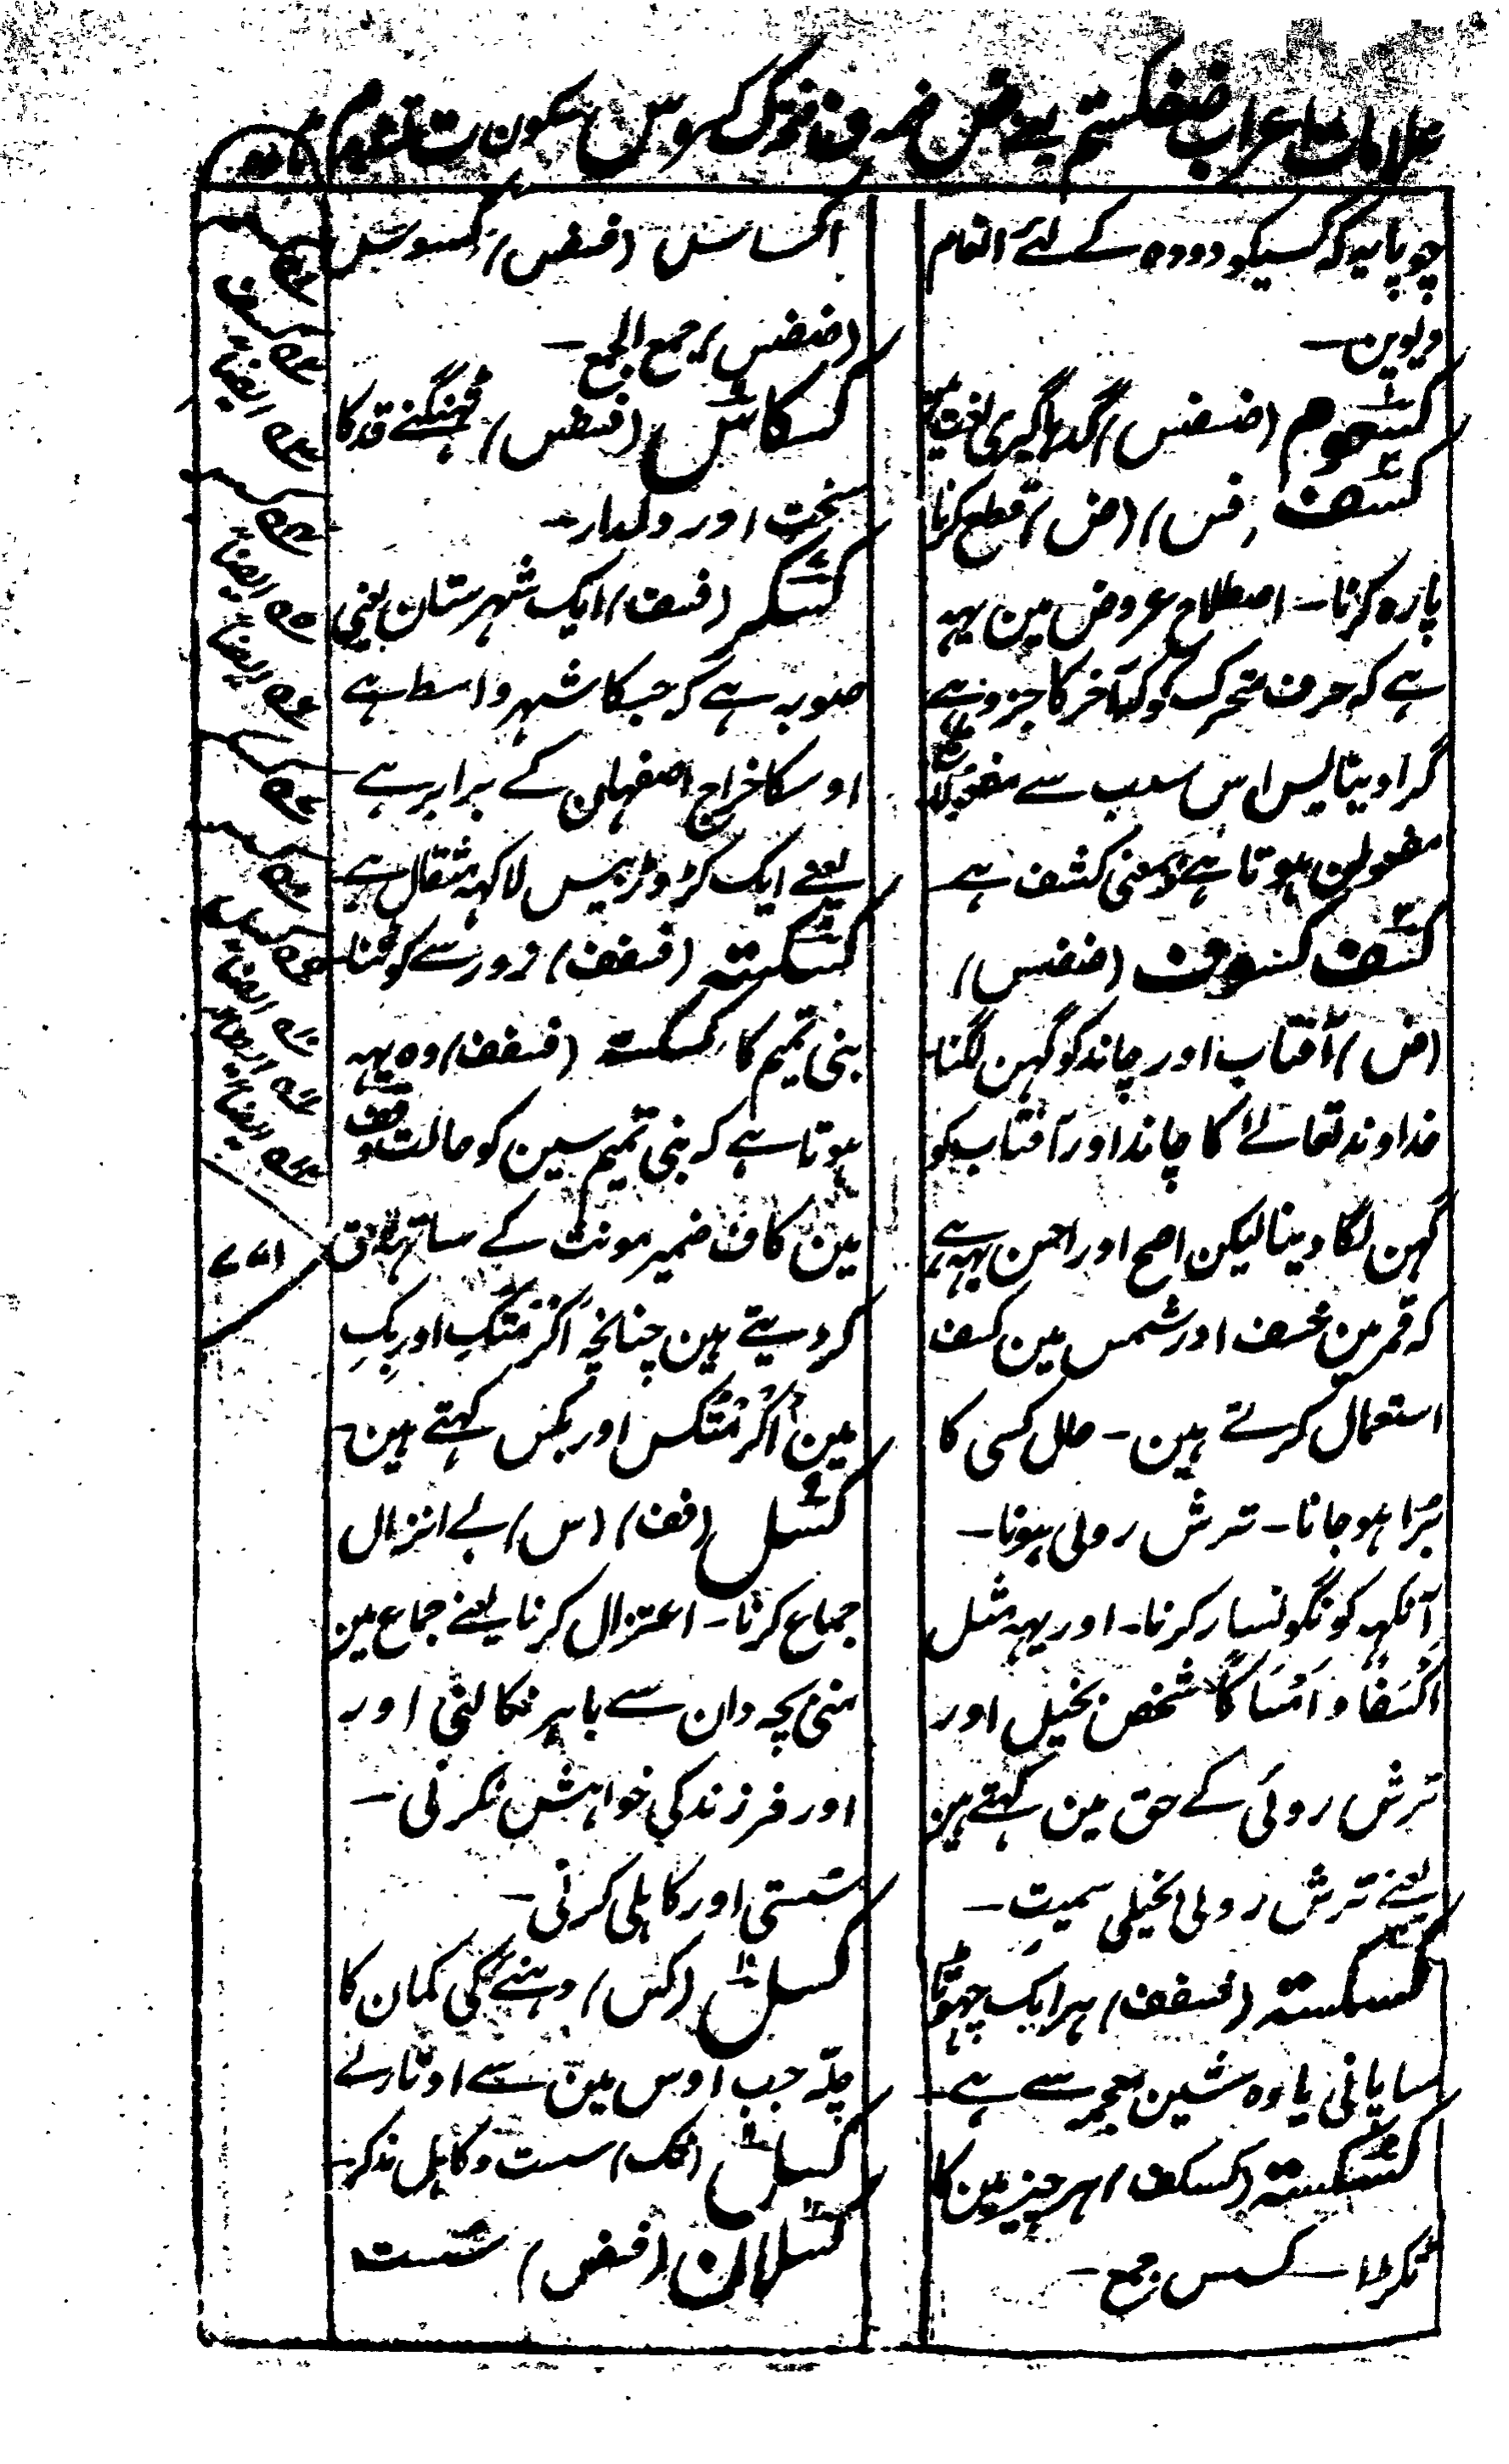 علامات اعراب ضفکستم یعنے ض ضمہ ف فتحہ ک کسرہ س سکون ت م
چوپایہ کہ کسیکو دودہ کے لئے انعام
دیوین۔
کسوم (ضضس) گدہا گیری
کسف (فس) (ض) قطع کرنا
پارہ کرنا۔ اصطلاح عروض مین یہہ
ہے کہ حرف متحرک کو کہ آخر کا جزو ہے
گرا دینا پس اس سبب سے مفعولات
مفعولن ہوتا ہے بمعنی کشف ہے
کسف کسوف (ضضس)
(ض) آفتاب اور چاند کو گہن لگنا
خداوند تعالےٰ کا چاند اور آفتاب کو
گہن لگا دینا لیکن اصح اور احسن یہہ ہے
کہ قمر مین خسف اور شمس مین کسف
استعمال کرتے ہین۔ حال کسی کا
بُرا ہو جانا۔ ترش روئی ہونا۔
آنکہہ کو نگونسار کرنا۔ اور یہہ مثل
اَکَسَفًا و اَمْسَاکًا شخص بخیل اور
ترش روئی کے حق مین کہتے ہین
یعنے ترش روئی بخیلی سمیت۔
کسکستہ (فسفف) ہر ایک چہوٹا
سا پانی یا وہ شین معجمہ سے ہے
کسکستہ (کسکف) ہر چیز مین کا
ٹکڑا۔ کسس جمع۔
اکساس (فسفس) کسوس
(ضضس) جمع الجمع۔
کسکاس (فسفس) ٹھنگنے قد کا
سخت اور دلدار۔
کسکر (فسف) ایک شہرستان یعنی
صوبہ ہے کہ جسکا شہر واسط ہے
اوسکا خراج اصفہان کے برابر ہے
یعنے ایک کروڑ بیس لاکہہ مثقال ہے
کسکستہ (فسفف) زور سے کوٹنا
بنی تمیم کا کسکستہ (فسفف) وہ یہہ
ہوتا ہے کہ بنی تمیم سین کو حالت وقف
مین کاف ضمیر مونث کے ساتہہ لاحق
کر دیتے ہین چنانچہ اَکْرَمْتُکِ اور بِکِ
مین اَکْرَمْتُکِس اور بِکِس کہتے ہین۔
کسل (فف) (س) بے انزال
جماع کرنا۔ اعتزال کرنا یعنے جماع مین
منی بچہ دان سے باہر نکالنی اور
اور فرزند کی خواہش نکرنی۔
سُستی اور کاہلی کرنی۔
کسل (کس) دہنے کی کمان کا
چلّہ جب اوس مین سے اوتار لے
کسل (فک) سست و کاہل مذکر
کسلان (فسفس) سُست
م۱
م۲
م۳ ایضاً
م۴
م۵ ایضاً
م۶ ایضاً
م۷
م۸
م۹
م۱۰ ایضاً
م۱۱ ایضاً
م۱۲ ایضاً